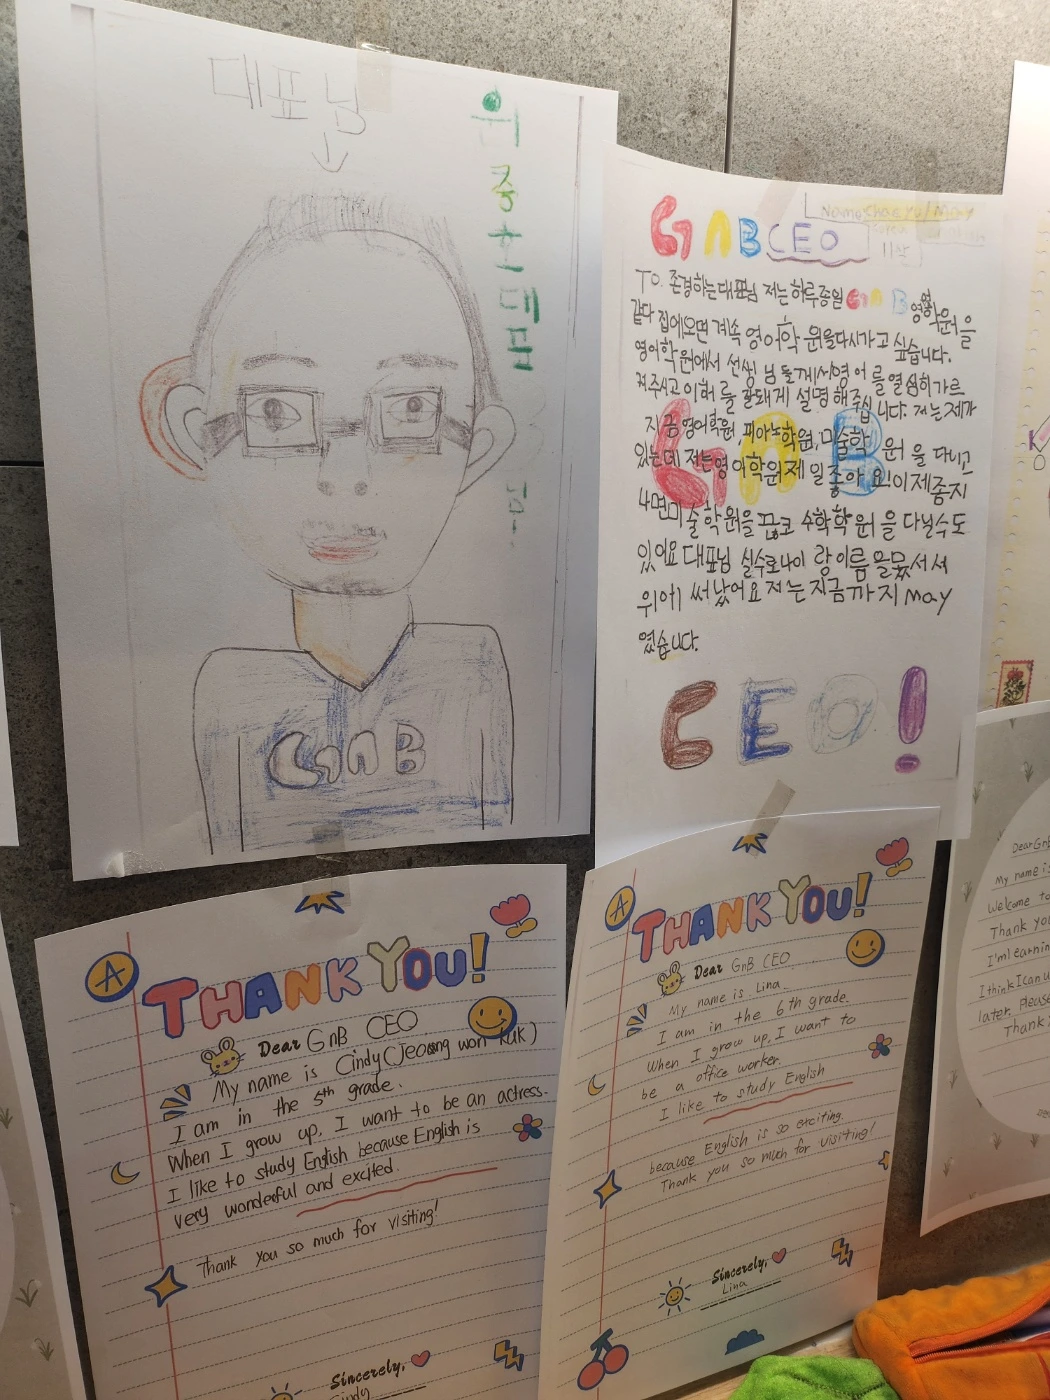 대표님
원
중
GNB CEO
Name Chaeyu/May
11살
To. 존경하는대표님 저는하루종일 GNB 영어학원을
같다 집에오면 계속 영어학원을다시가고 싶습니다.
영어학원에서 선생님들께서영어를열심히가르
져주시고 이해를 잘돼게 설명해주십니다. 저는제가
지금영어학원, 피아노학원, 미술학원을 다니고
있는데 저는영어학원제일좋아요!이제좀지
나면미술학원을끊코 수학학원을 다닐수도
있어요 대표님 실수로나이랑이름을못써서
위에 써났어요 저는지금까지 May
였습니다.
GNB
CEO!
GNB
A
THANK YOU!
Dear GnB CEO
My name is Cindy(Jeoung won kuk)
I am in the 5th grade.
When I grow up, I want to be an actress.
I like to study English because English is
very wonderful and excited.
Thank you so much for visiting!
Sincerely,
Cindy
A
THANK YOU!
Dear GnB CEO
My name is Lina.
I am in the 6th grade.
When I grow up, I want to
be a office worker.
I like to study English
because English is so exciting.
Thank you so much for visiting!
Sincerely,
Lina
Dear GnB
My name is
Welcome to
Thank you
I'm learnin
I think I can u
later. Please
Thank